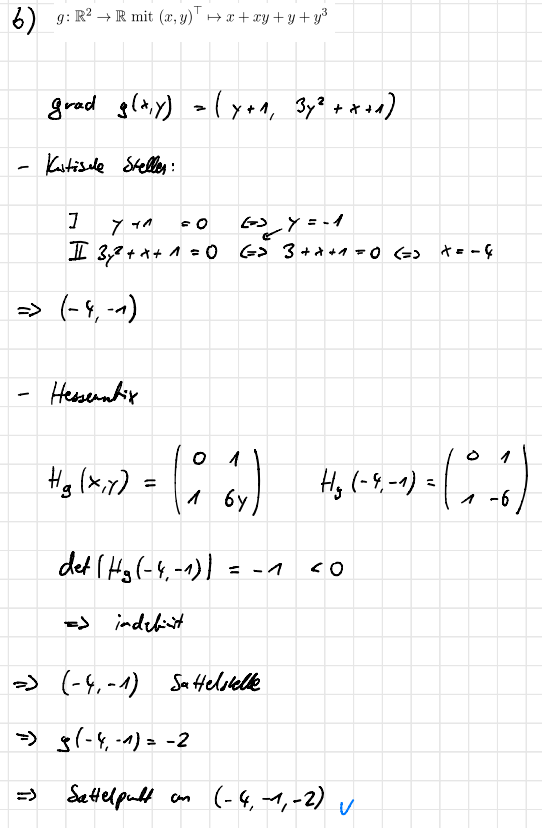 b) g: ℝ² → ℝ mit (x, y)ᵀ ↦ x + xy + y + y³
grad g(x,y) = ( y+1, 3y² + x +1)
- Kritische Stellen:
I y +1 = 0 <=> y = -1
II 3y² + x + 1 = 0 <=> 3 + x + 1 = 0 <=> x = -4
=> (-4, -1)
- Hessematrix
H_g (x,y) = (0 1; 1 6y) H_g (-4,-1) = (0 1; 1 -6)
det(H_g(-4,-1)) = -1 < 0
=> indefinit
=> (-4, -1) Sattelstelle
=> g(-4, -1) = -2
=> Sattelpunkt an (-4, -1, -2) ✓